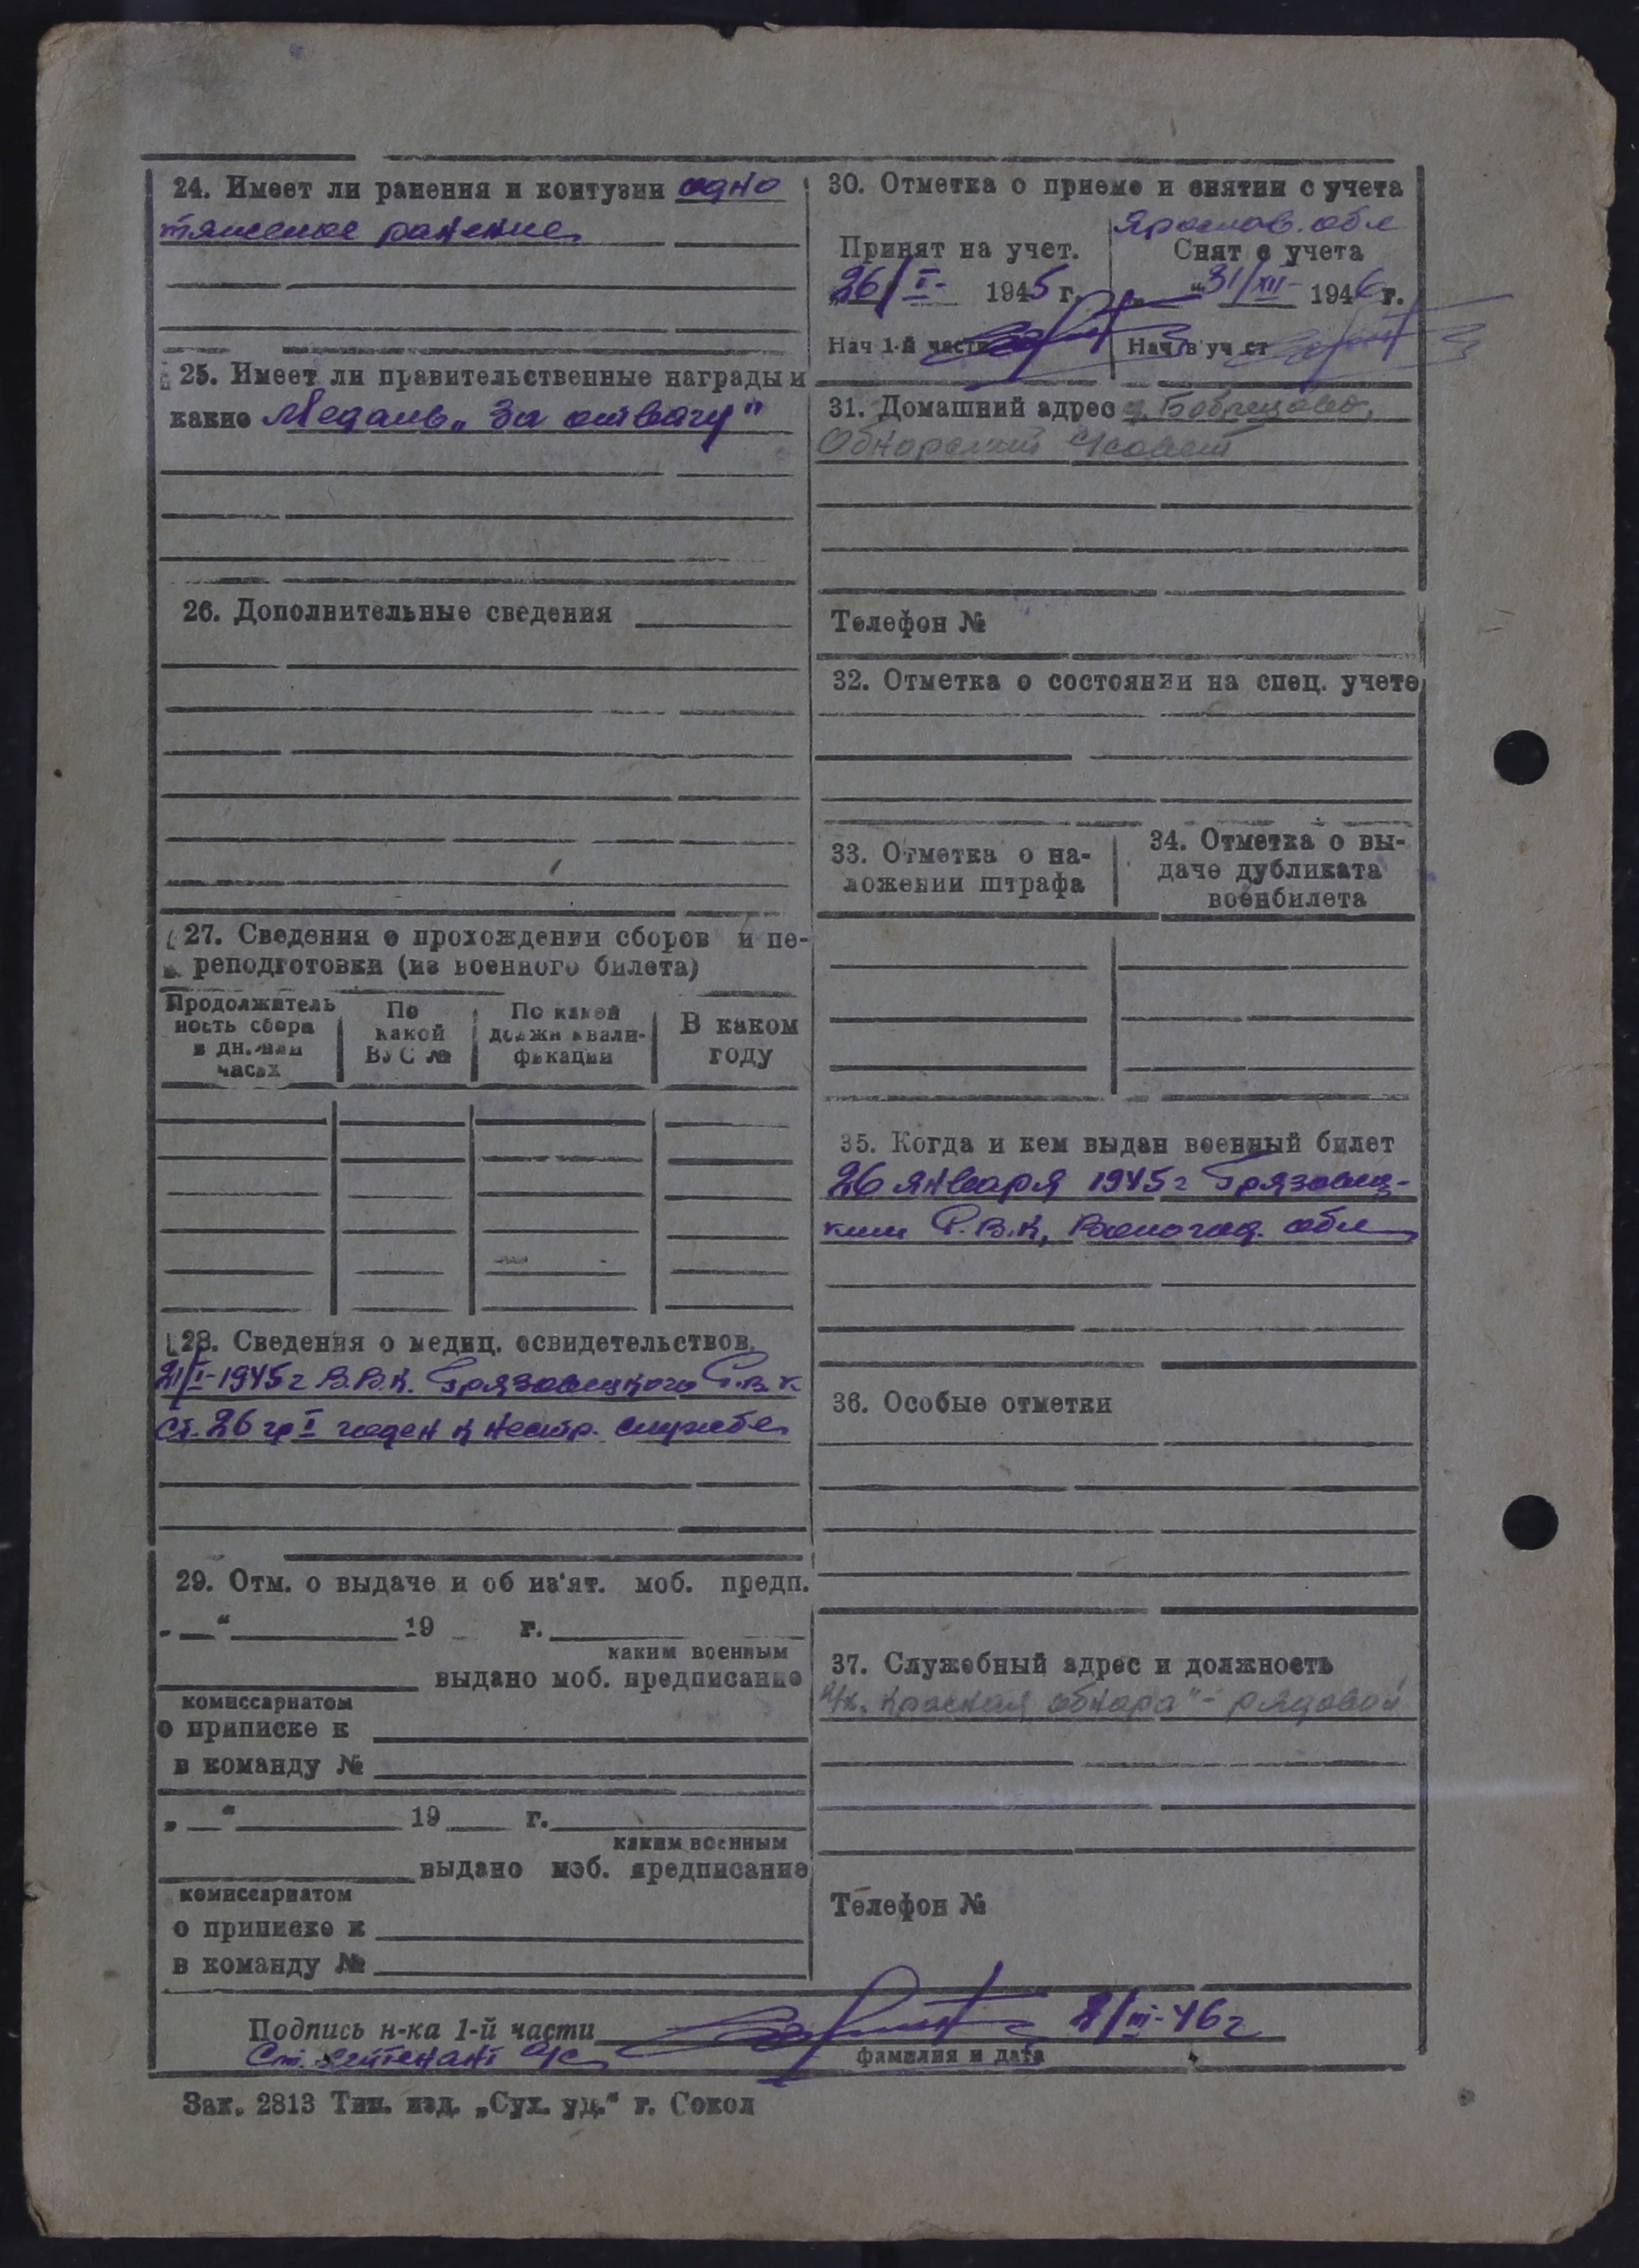 24. Имеет ли ранения и контузии одно
тяжелое ранение
25. Имеет ли правительственные награды и
какие Медаль „За отвагу"
26. Дополнительные сведения
27. Сведения о прохождении сборов и пе-
реподготовки (из военного билета)
Продолжитель
ность сбора
в дн. или
часах
По
какой
ВУС №
По какой
должн квали-
фикации
В каком
году
28. Сведения о медиц. освидетельствов.
21/I-1945г В.В.К. Грязовецкого Р.В.К.
Ст. 26 гр I годен к нестр. службе
29. Отм. о выдаче и об из'ят. моб. предп.
„ “ 19 г.
каким военным
выдано моб. предписание
комиссариатом
о приписке к
в команду №
„ “ 19 г.
каким военным
выдано моб. предписание
комиссариатом
о приписке к
в команду №
30. Отметка о приеме и снятии с учета
Ярослав. обл
Принят на учет.
26/I- 1945 г.
Нач 1-й части
Снят с учета
„ “ 31/XII- 1946 г.
Нач в уч ст
31. Домашний адрес д. Бобрецово,
Обнорский с/совет
Телефон №
32. Отметка о состоянии на спец. учете
33. Отметка о на-
ложении штрафа
34. Отметка о вы-
даче дубликата
военбилета
35. Когда и кем выдан военный билет
26 января 1945г Грязовец-
ким Р.В.К, Вологод. обл
36. Особые отметки
37. Служебный адрес и должность
к/х. „Красная обнора" - рядовой
Телефон №
Подпись н-ка 1-й части 2/III-46г
Ст. лейтенант а/с
фамилия и дата
Зак. 2813 Тип. изд. „Сух. уд.“ г. Сокол